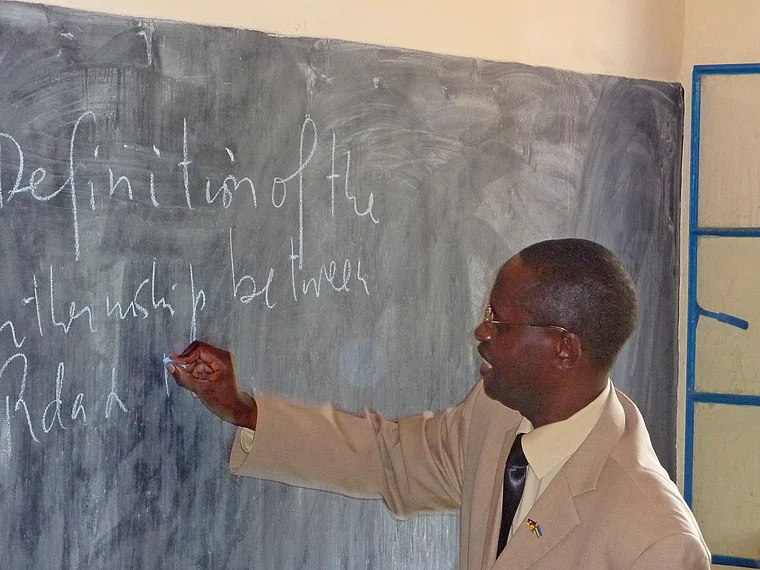 Definition of the
rthernship between
Rdad